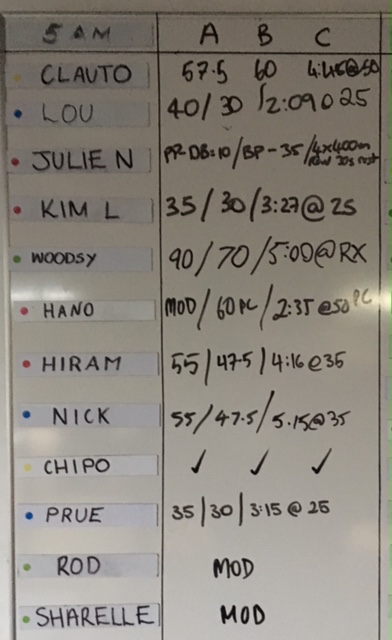 5 AM A B C
CLAUTO 57.5 60 4:45@50
LOU 40/30/2:09@25
JULIE N PR DB=10/BP-35/4x400m
Row 20s rest
KIM L 35/30/3:27@25
WOODSY 90/70/5:00@RX
HANO MOD/60PC/2:35@50PC
HIRAM 55/47.5/4:16@35
NICK 55/47.5/5.15@35
CHIPO ✓ ✓ ✓
PRUE 35/30/3:15@25
ROD MOD
SHARELLE MOD